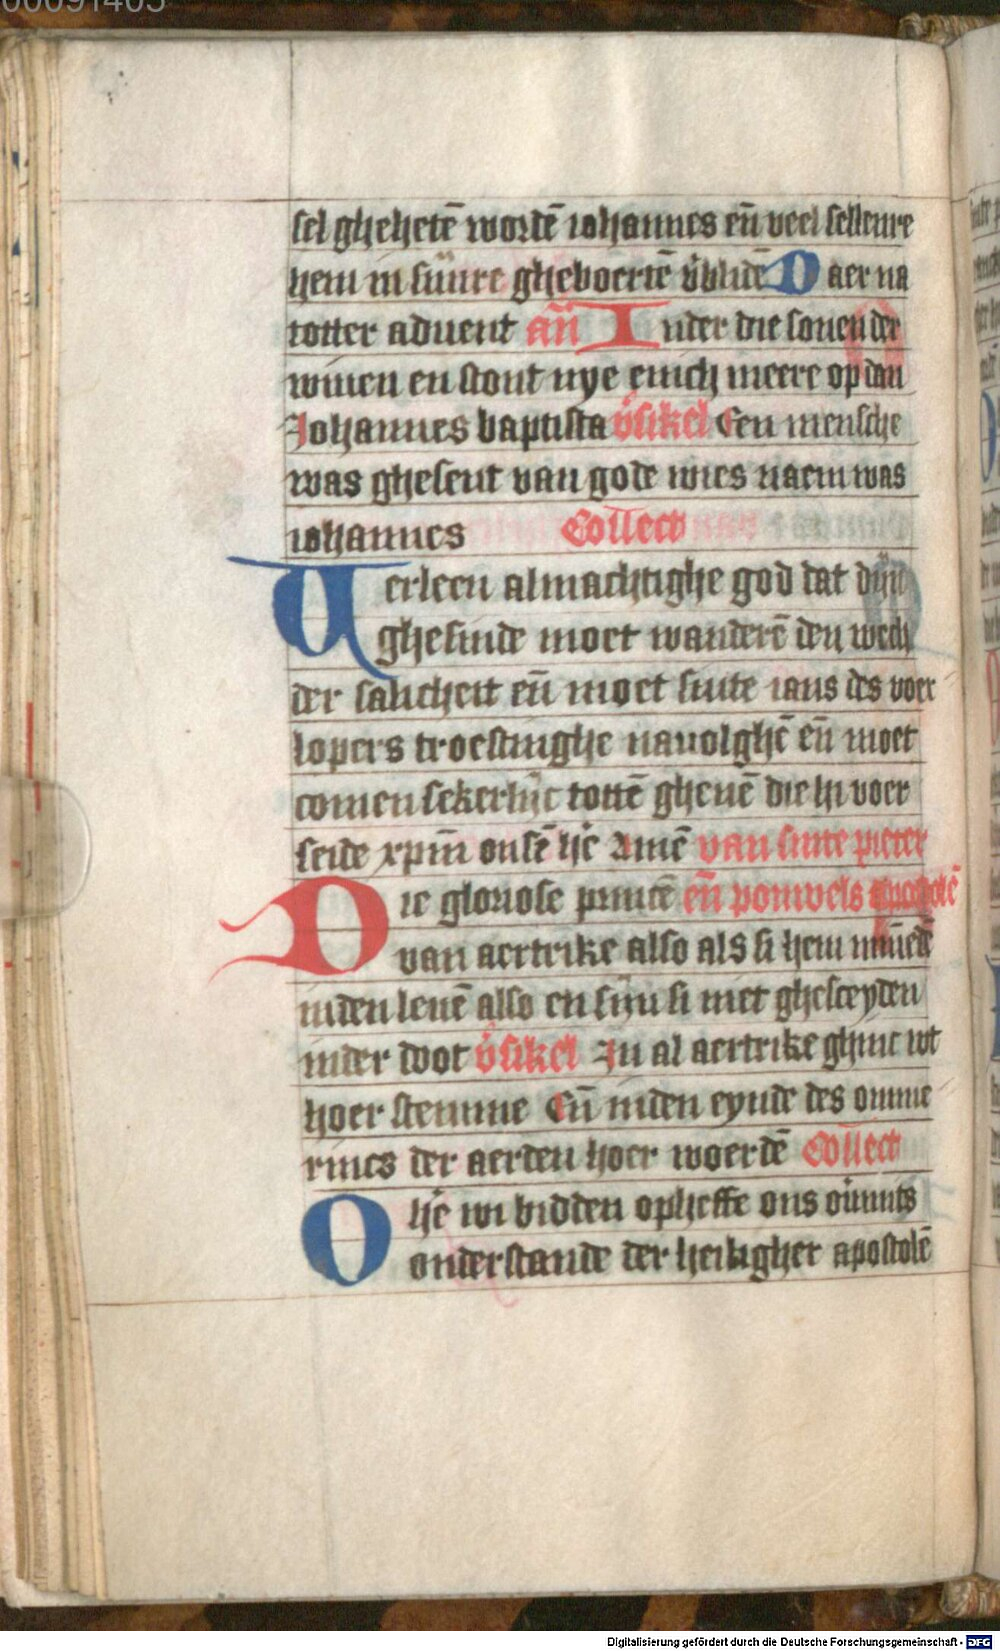 00091405
sel ghehetē wordē iohannes eñ veel sellenre
hem in sijnre gheboertē v̄blidē Daer na
totter advent añ Inder die sonen der
wiuen en stont nye enich meere op dan
Johannes baptista v̄sikel Een mensche
was ghesent van gode wies naem was
iohannes Collect
Uerleen almachtighe god dat dijn
ghesinde moet wanderē den wech
der salicheit eñ moet sinte ians des voer
lopers troestinghe nauolghē eñ moet
comen sekerlijc tottē ghenē die hi voer
seide xpm̄ onsē hē Amē van sinte pieter
Die gloriose princē eñ pouwels apostolē
van aertrike also als si hem minedē
inden leuē also en sijn si niet ghesceyden
inder doot v̄sikel In al aertrike ghinc wt
hoer stemme Eñ inden eynde des omme
rincs der aerden hoer woerdē Collect
O hē wi bidden opheffe ons ouimts
onderstande der heiligher apostolē
Digitalisierung gefördert durch die Deutsche Forschungsgemeinschaft - DFG